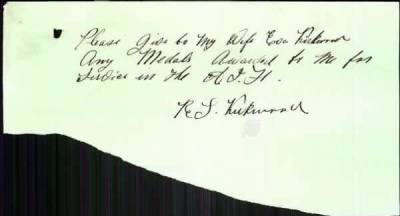 Please Give to My Wife Eva Kirkwood
Any Medals Awarded to Me for
Service in the A.I.F.
R S Kirkwood